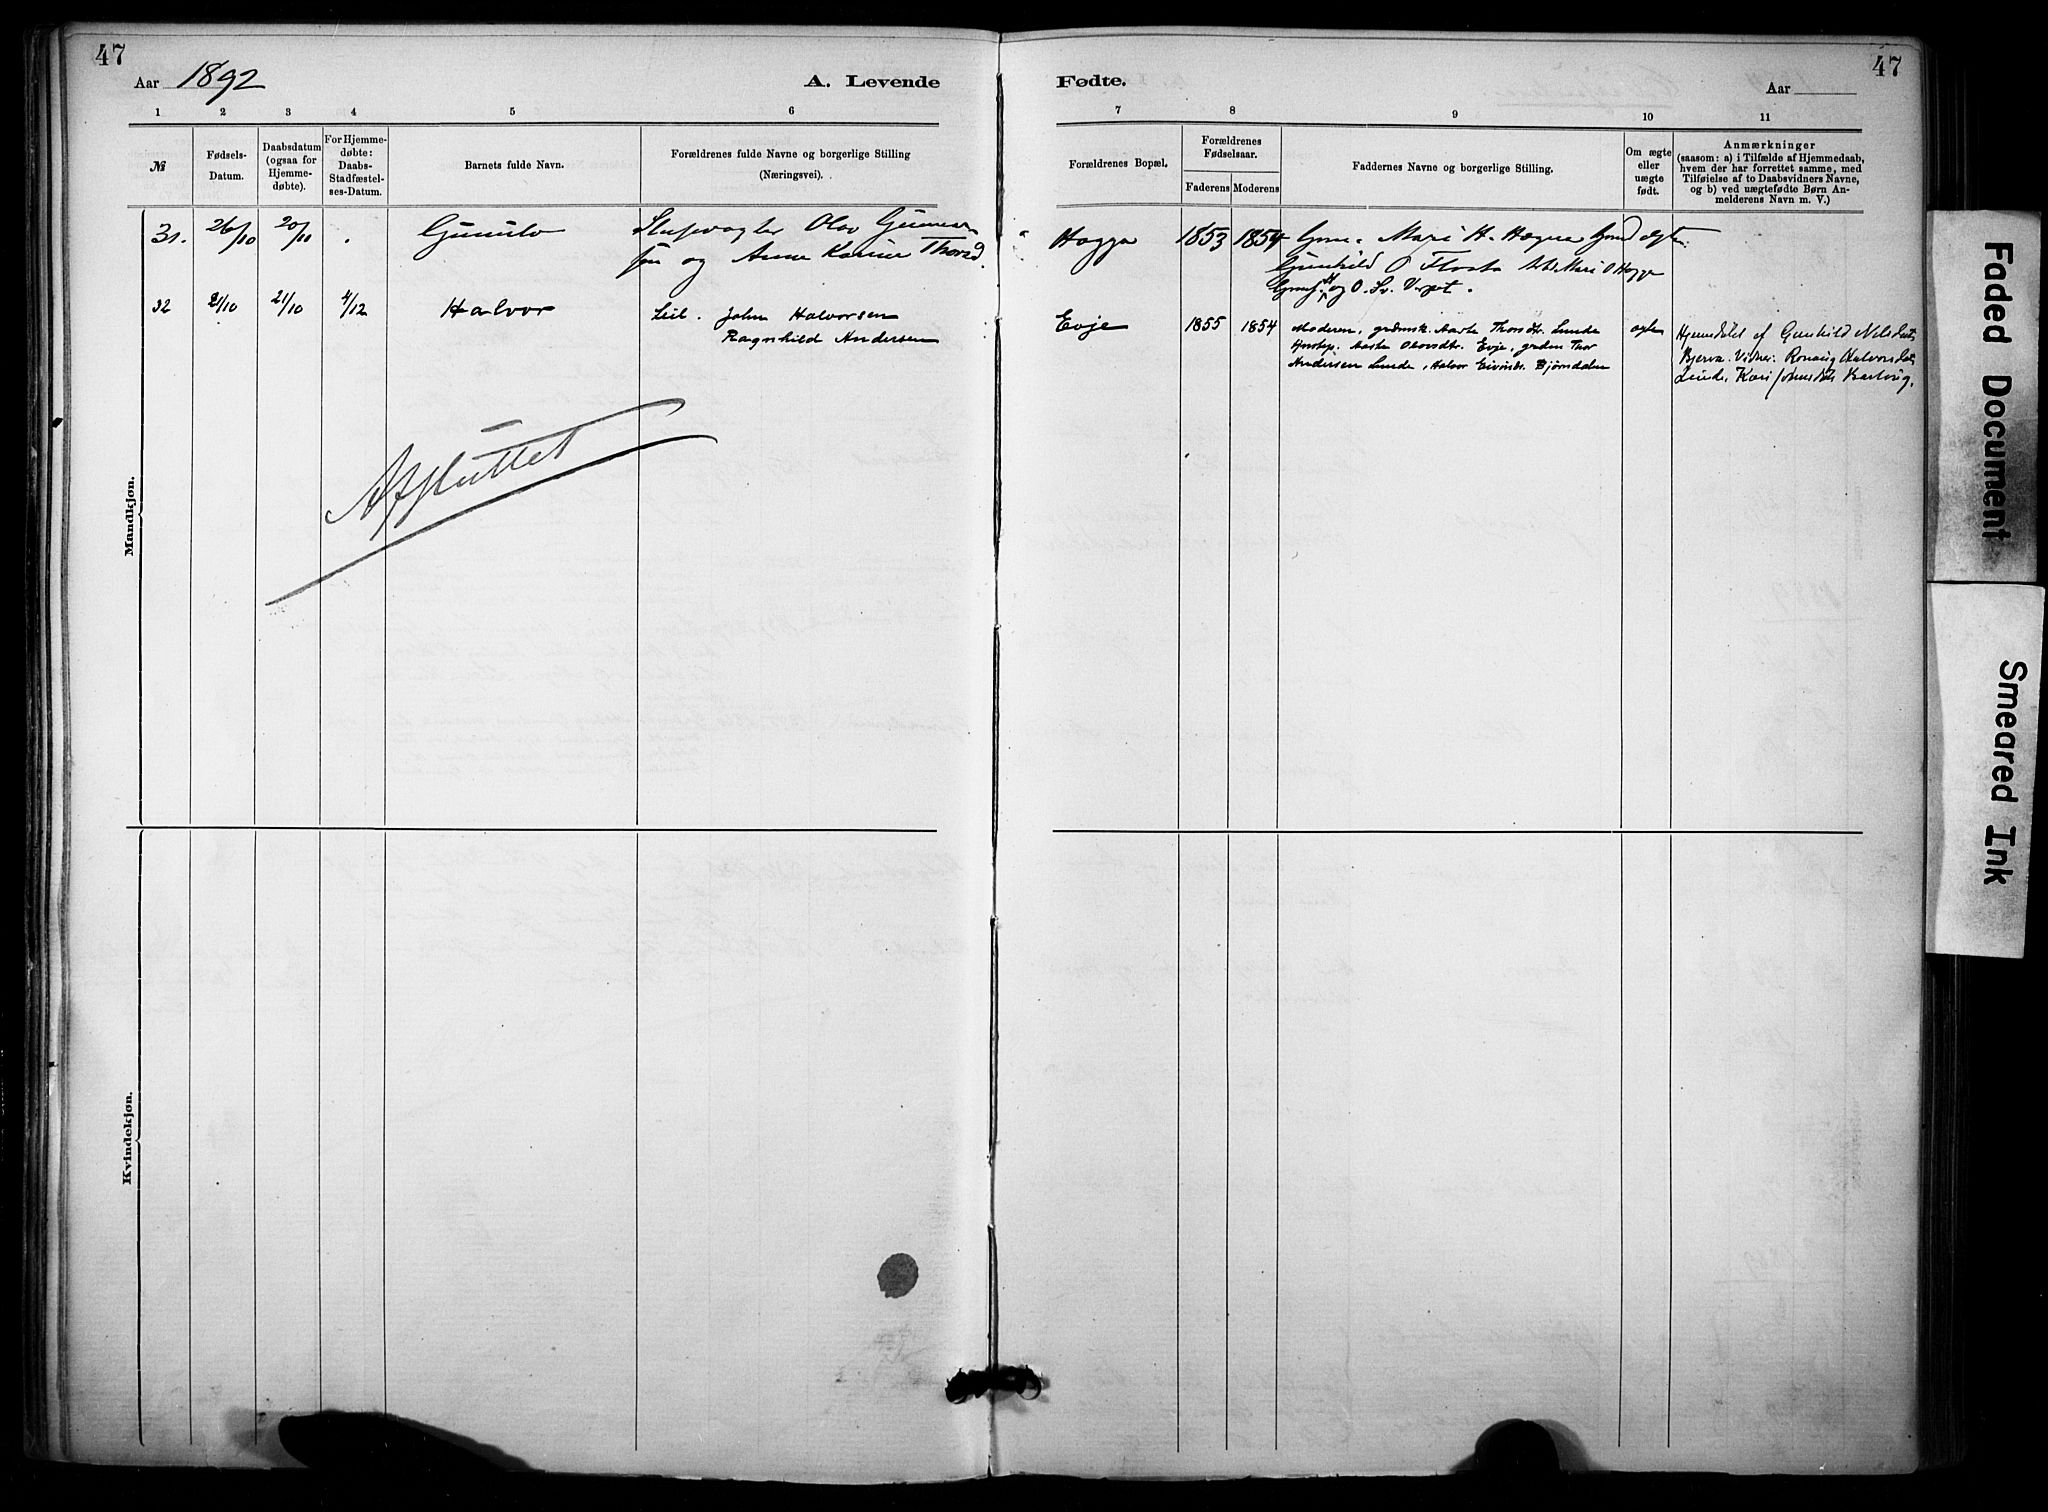 47
Aar 1892
A. Levende
1 2 3 4 5 6
№
Fødsels-
Datum.
Daabsdatum
(ogsaa for
Hjemme-
døbte).
For Hjemme-
døbte:
Daabs-
Stadfæstel-
ses-Datum.
Barnets fulde Navn.
Forældrenes fulde Navne og borgerlige Stilling
(Næringsvei).
Mandkjøn.
31. 26/10 20/11 Gunulv Slusevogter Olav Gunnar-
sen og Anne Karine Thorsd.
32 21/10 21/10 4/12 Halvor Leil. John Halvorsen
Ragnhild Andersen
Afsluttet
Kvindekjøn.
47
Fødte.
Aar
7 8 9 10 11
Forældrenes Bopæl.
Forældrenes
Fødselsaar.
Faderens Moderens
Faddernes Navne og borgerlige Stilling.
Om ægte
eller
uægte
født.
Anmærkninger
(saasom: a) i Tilfælde af Hjemmedaab,
hvem der har forrettet samme, med
Tilføielse af to Daabsvidners Navne,
og b) ved uægtefødte Børn An-
melderens Navn m. V.)
Hogga 1853 1854 Mari H. ægte
Gunhild O Mari O Hogga
og O.
Evje 1855 1854 Moderen, grdmsk. Aaste Thorsdtr. Lunde ægte
Aaste Olavsdtr. Evje, grdm Thor
Andersen Lunde, Halvor Eivinds. Bjørndalen
Hjemdøbt af Gunhild Nilsdatter
Bjerva. Vidner: Ronaug Halvorsdatter
Lunde, Kari
Faded Document
Smeared Ink